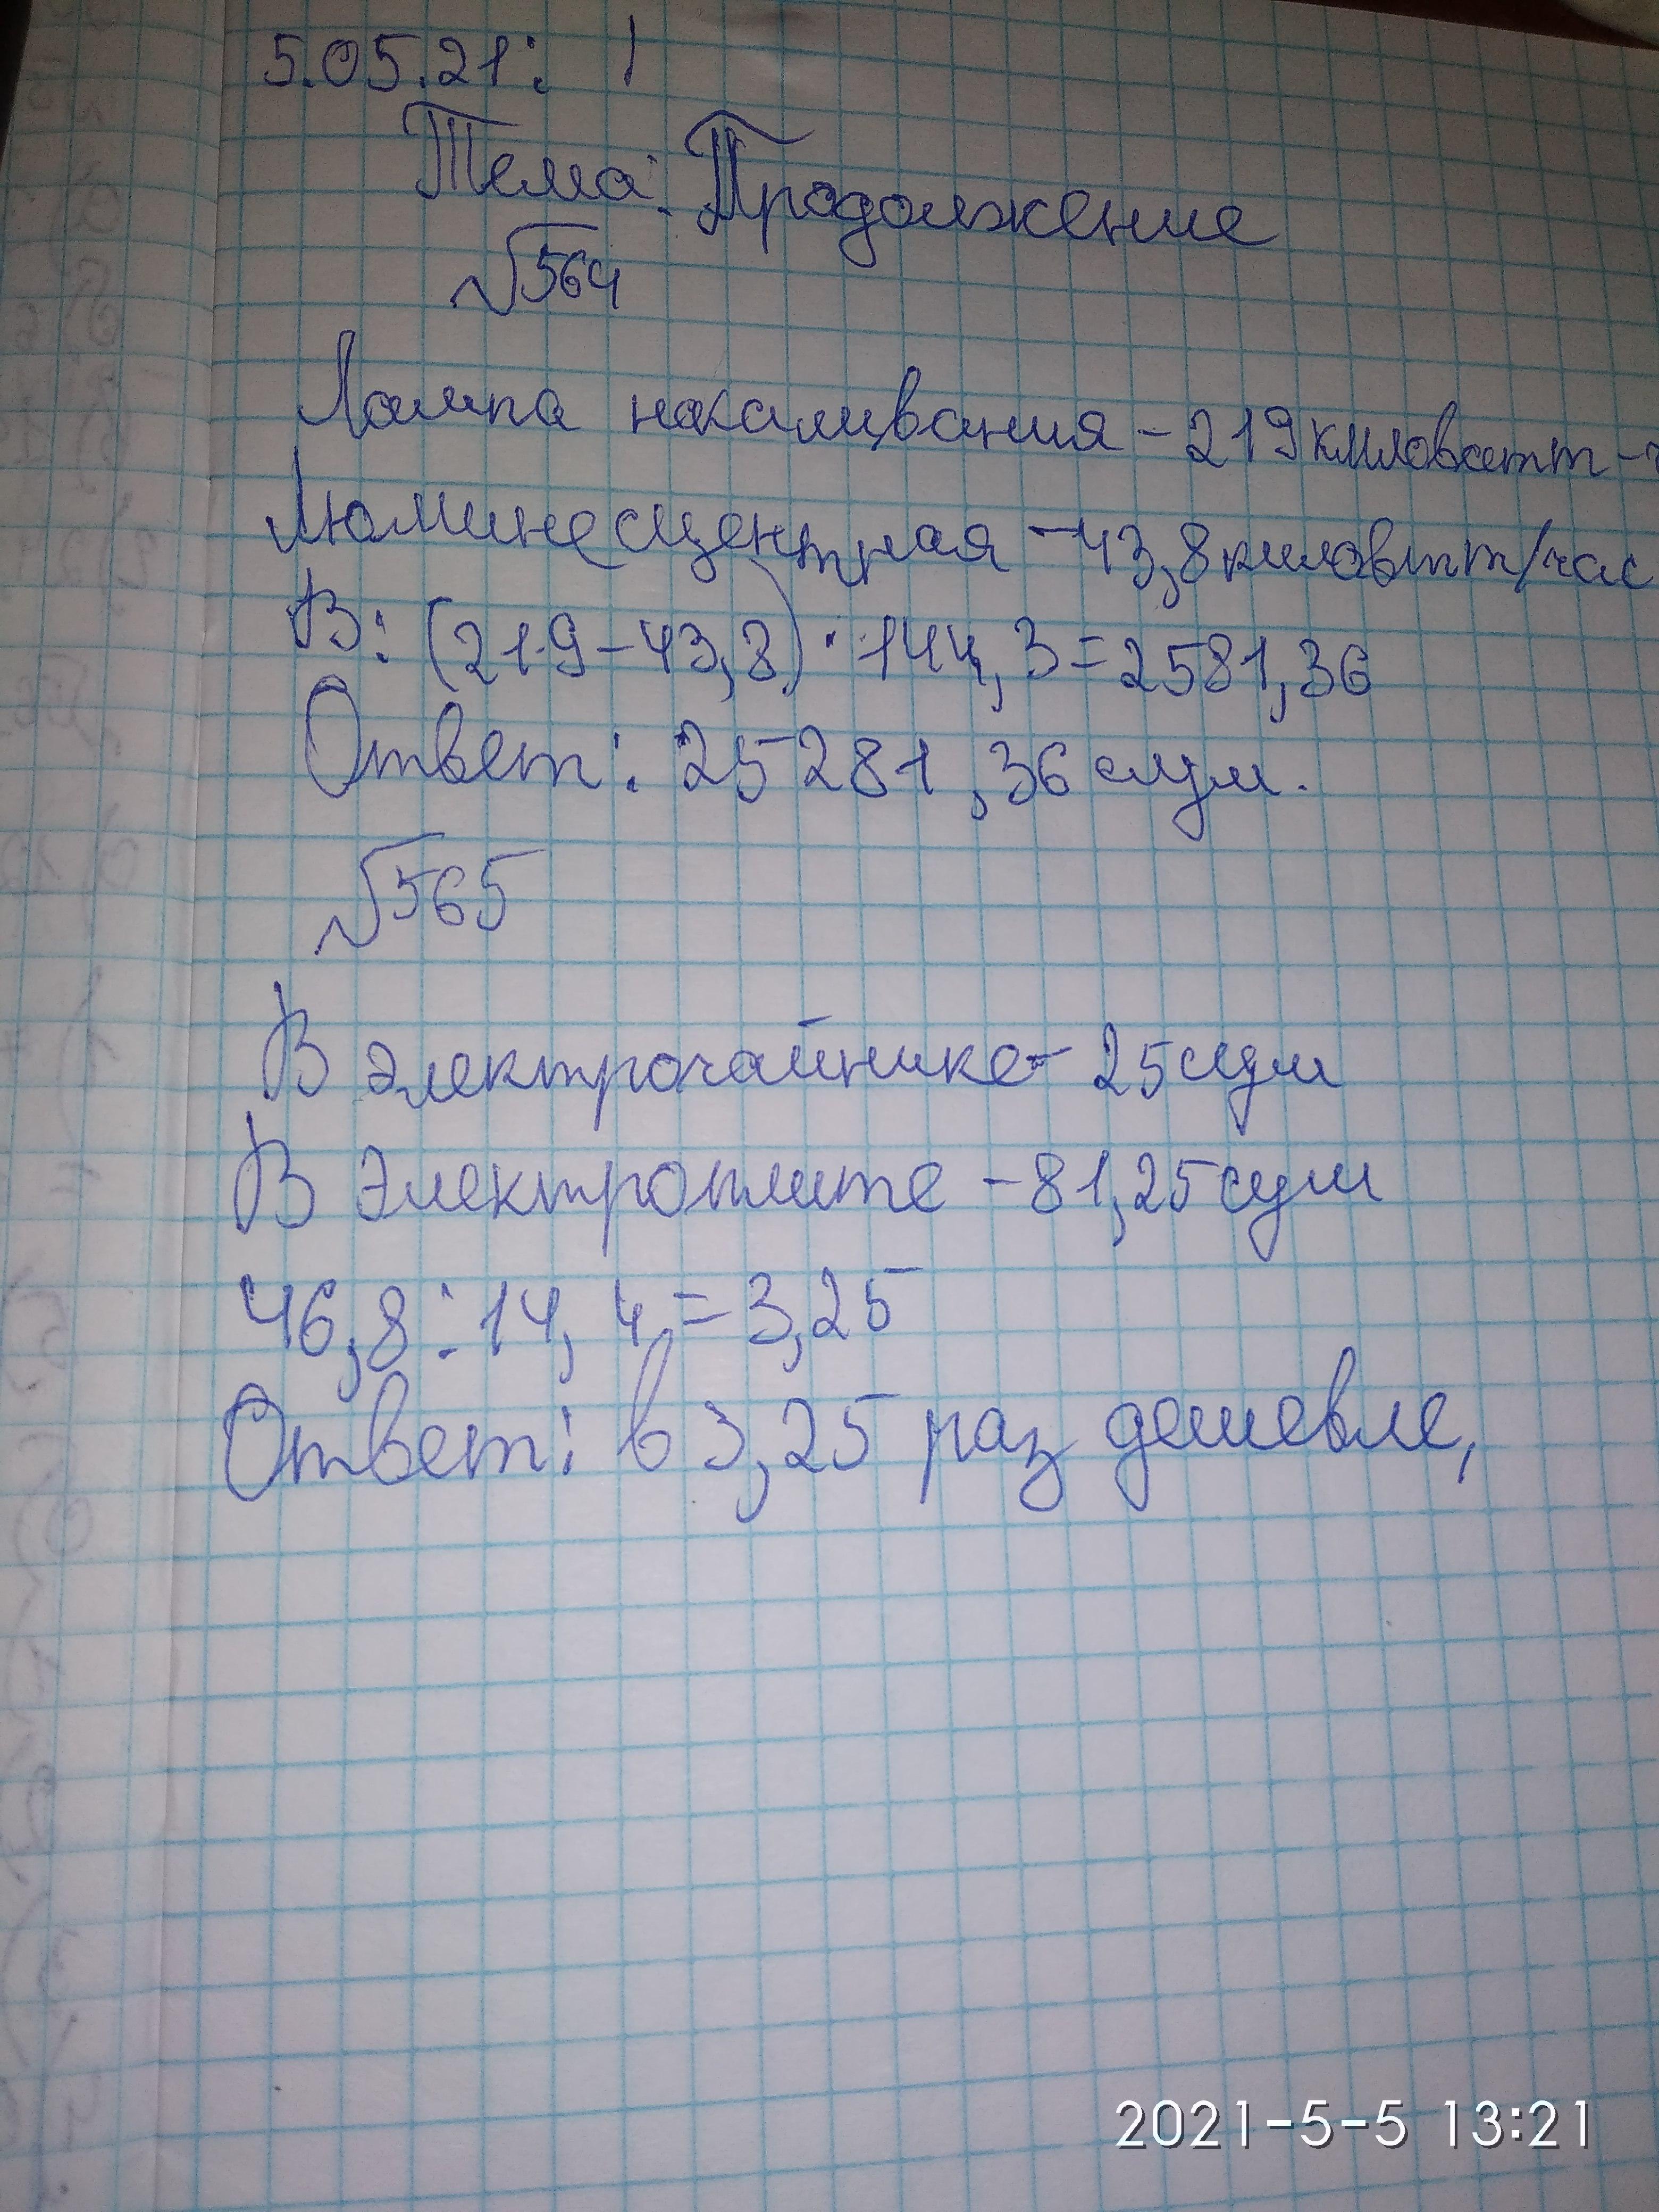 5.05.21:
Тема: Продолжение
№564
Лампа накаливания - 219 киловатт -ч
Люминесцентная - 43,8 киловтт/час
В: (219-43,8) · 144,3=2581,36
Ответ: 25281,36 сум.
№565
В электрочайнике - 25 сум
В Электроплите - 81,25 сум
46,8:14,4=3,25
Ответ: в 3,25 раз дешевле,
2021-5-5 13:21